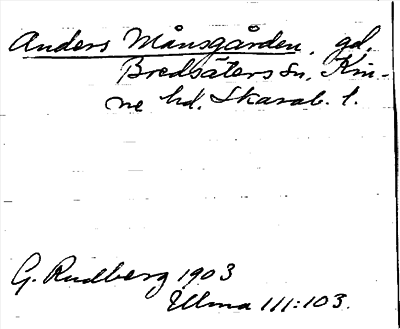 Anders Månsgården, gd,
Bredsäters sn, Kin-
ne hd. Skarab. l.
G. Rudberg 1903
Ulma 111:103.